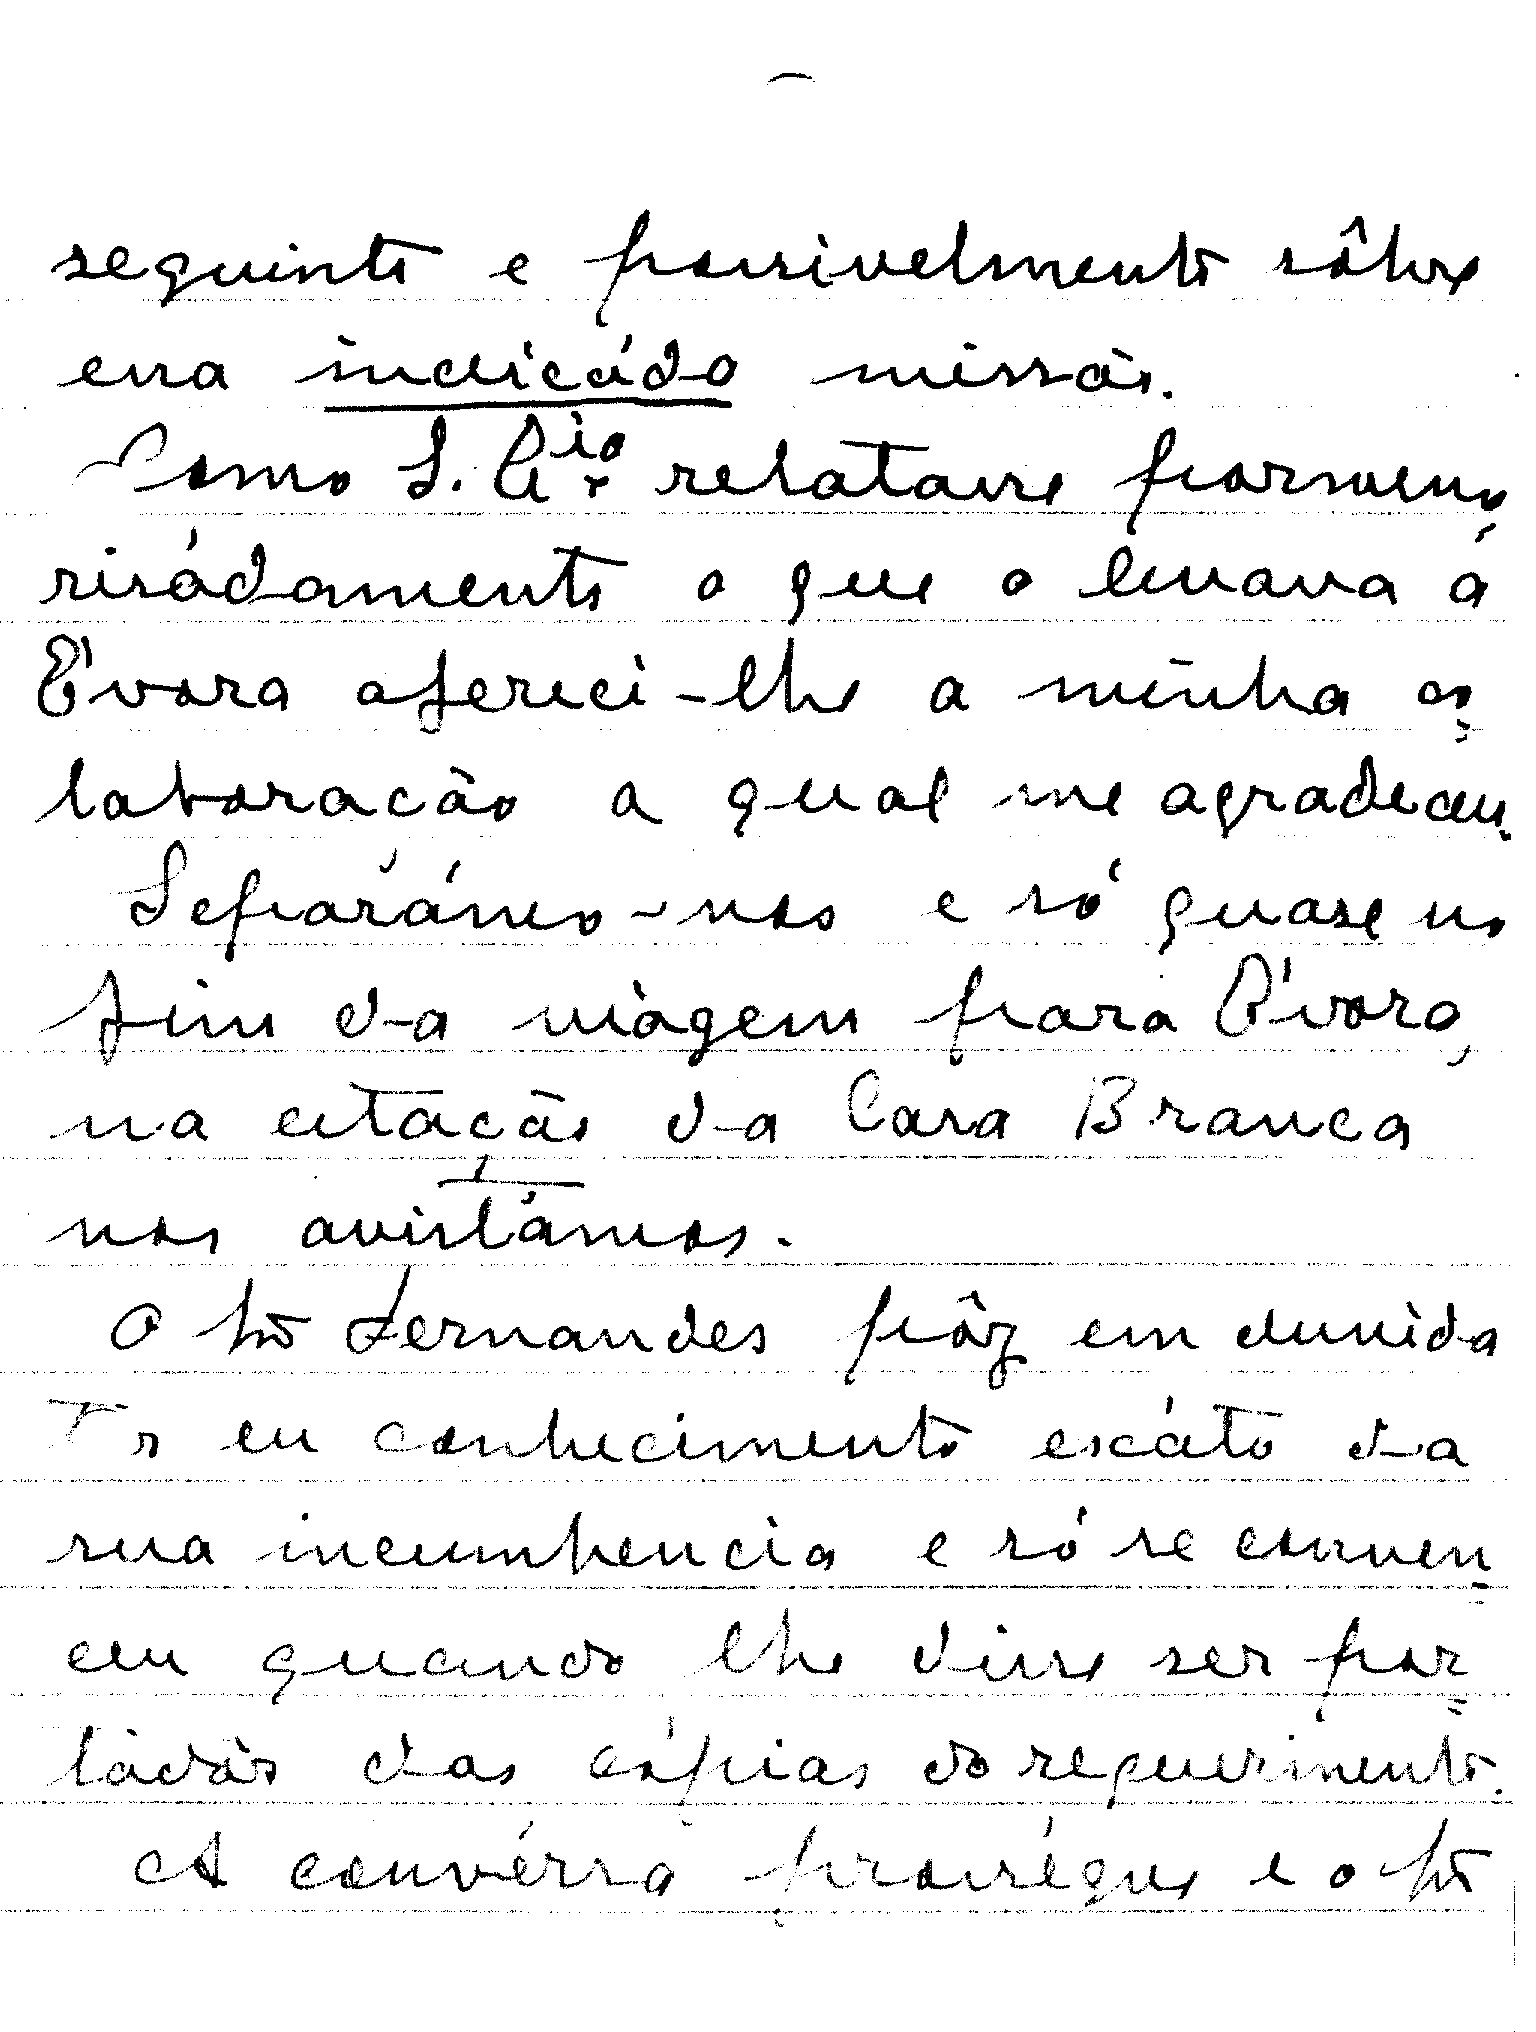 seguinte e possivelmente sôbre
essa indicádo missão.
Como S. Ex.cia relatasse pormeno
risádamente o que o levava á
Évora afereci-lhe a minha co=
laboração a qual me agradeceu.
Separámo-nos e só quase no
fim da viágem para Évora,
na estação da Casa Branca
nos avistámos.
O Fernandes pôz em duvida
Ter eu conhecimento exáto da
sua incumbencia e só se conven=
ceu quando lhe disse ser por=
tádor das cópias do requerimento.
A convérsa prosségue e o